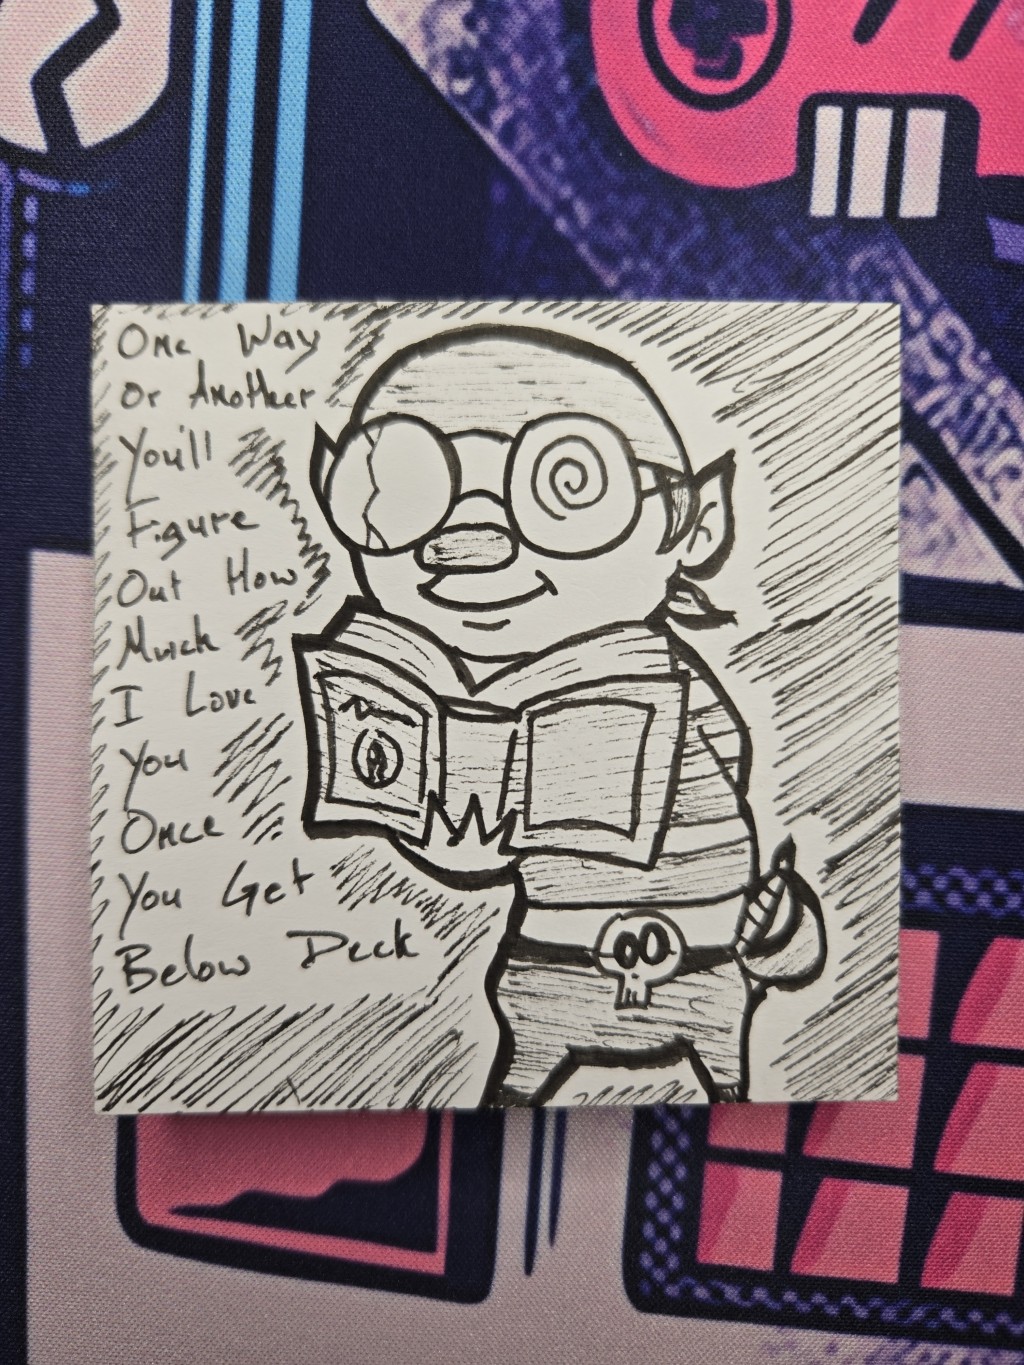 One Way
Or Another
You'll
Figure
Out How
Much
I Love
You
Once
You Get
Below Deck